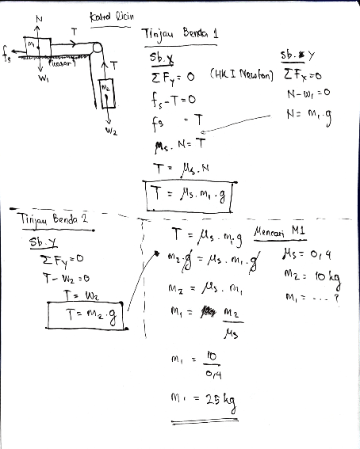 Katrol Licin
N
T
m₁
fs
(kasar)
T
W₁
m₂
W₂
Tinjau Benda 1
Sb. y
ΣFy = 0 (HK I Newton)
fs - T = 0
fs = T
μs . N = T
T = μs . N
T = μs . m₁ . g
Sb. y
ΣFx = 0
N - W₁ = 0
N = m₁ . g
Tinjau Benda 2
Sb. y
ΣFy = 0
T - W₂ = 0
T = W₂
T = m₂ . g
T = μs . m₁ . g
m₂ . g = μs . m₁ . g
m₂ = μs . m₁
m₁ = m₂ / μs
m₁ = 10 / 0,4
m₁ = 25 kg
Mencari M1
μs = 0,4
m₂ = 10 kg
m₁ = .... ?